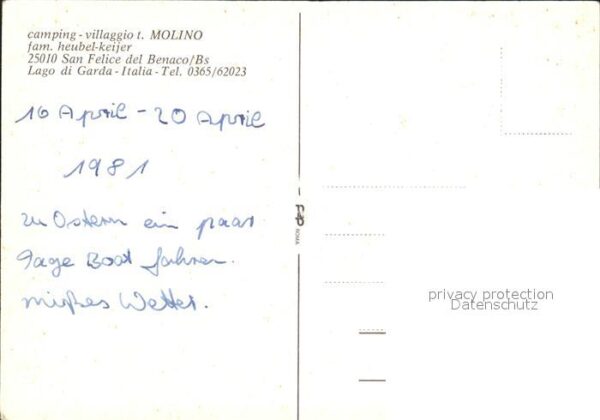 camping - villaggio t. MOLINO
fam. heubel-keijer
25010 San Felice del Benaco/Bs
Lago di Garda - Italia - Tel. 0365/62023
16 April - 20 April
1981
zu Ostern ein paar
Tage Boot fahren.
mißes Wetter.
ROMA
privacy protection
Datenschutz